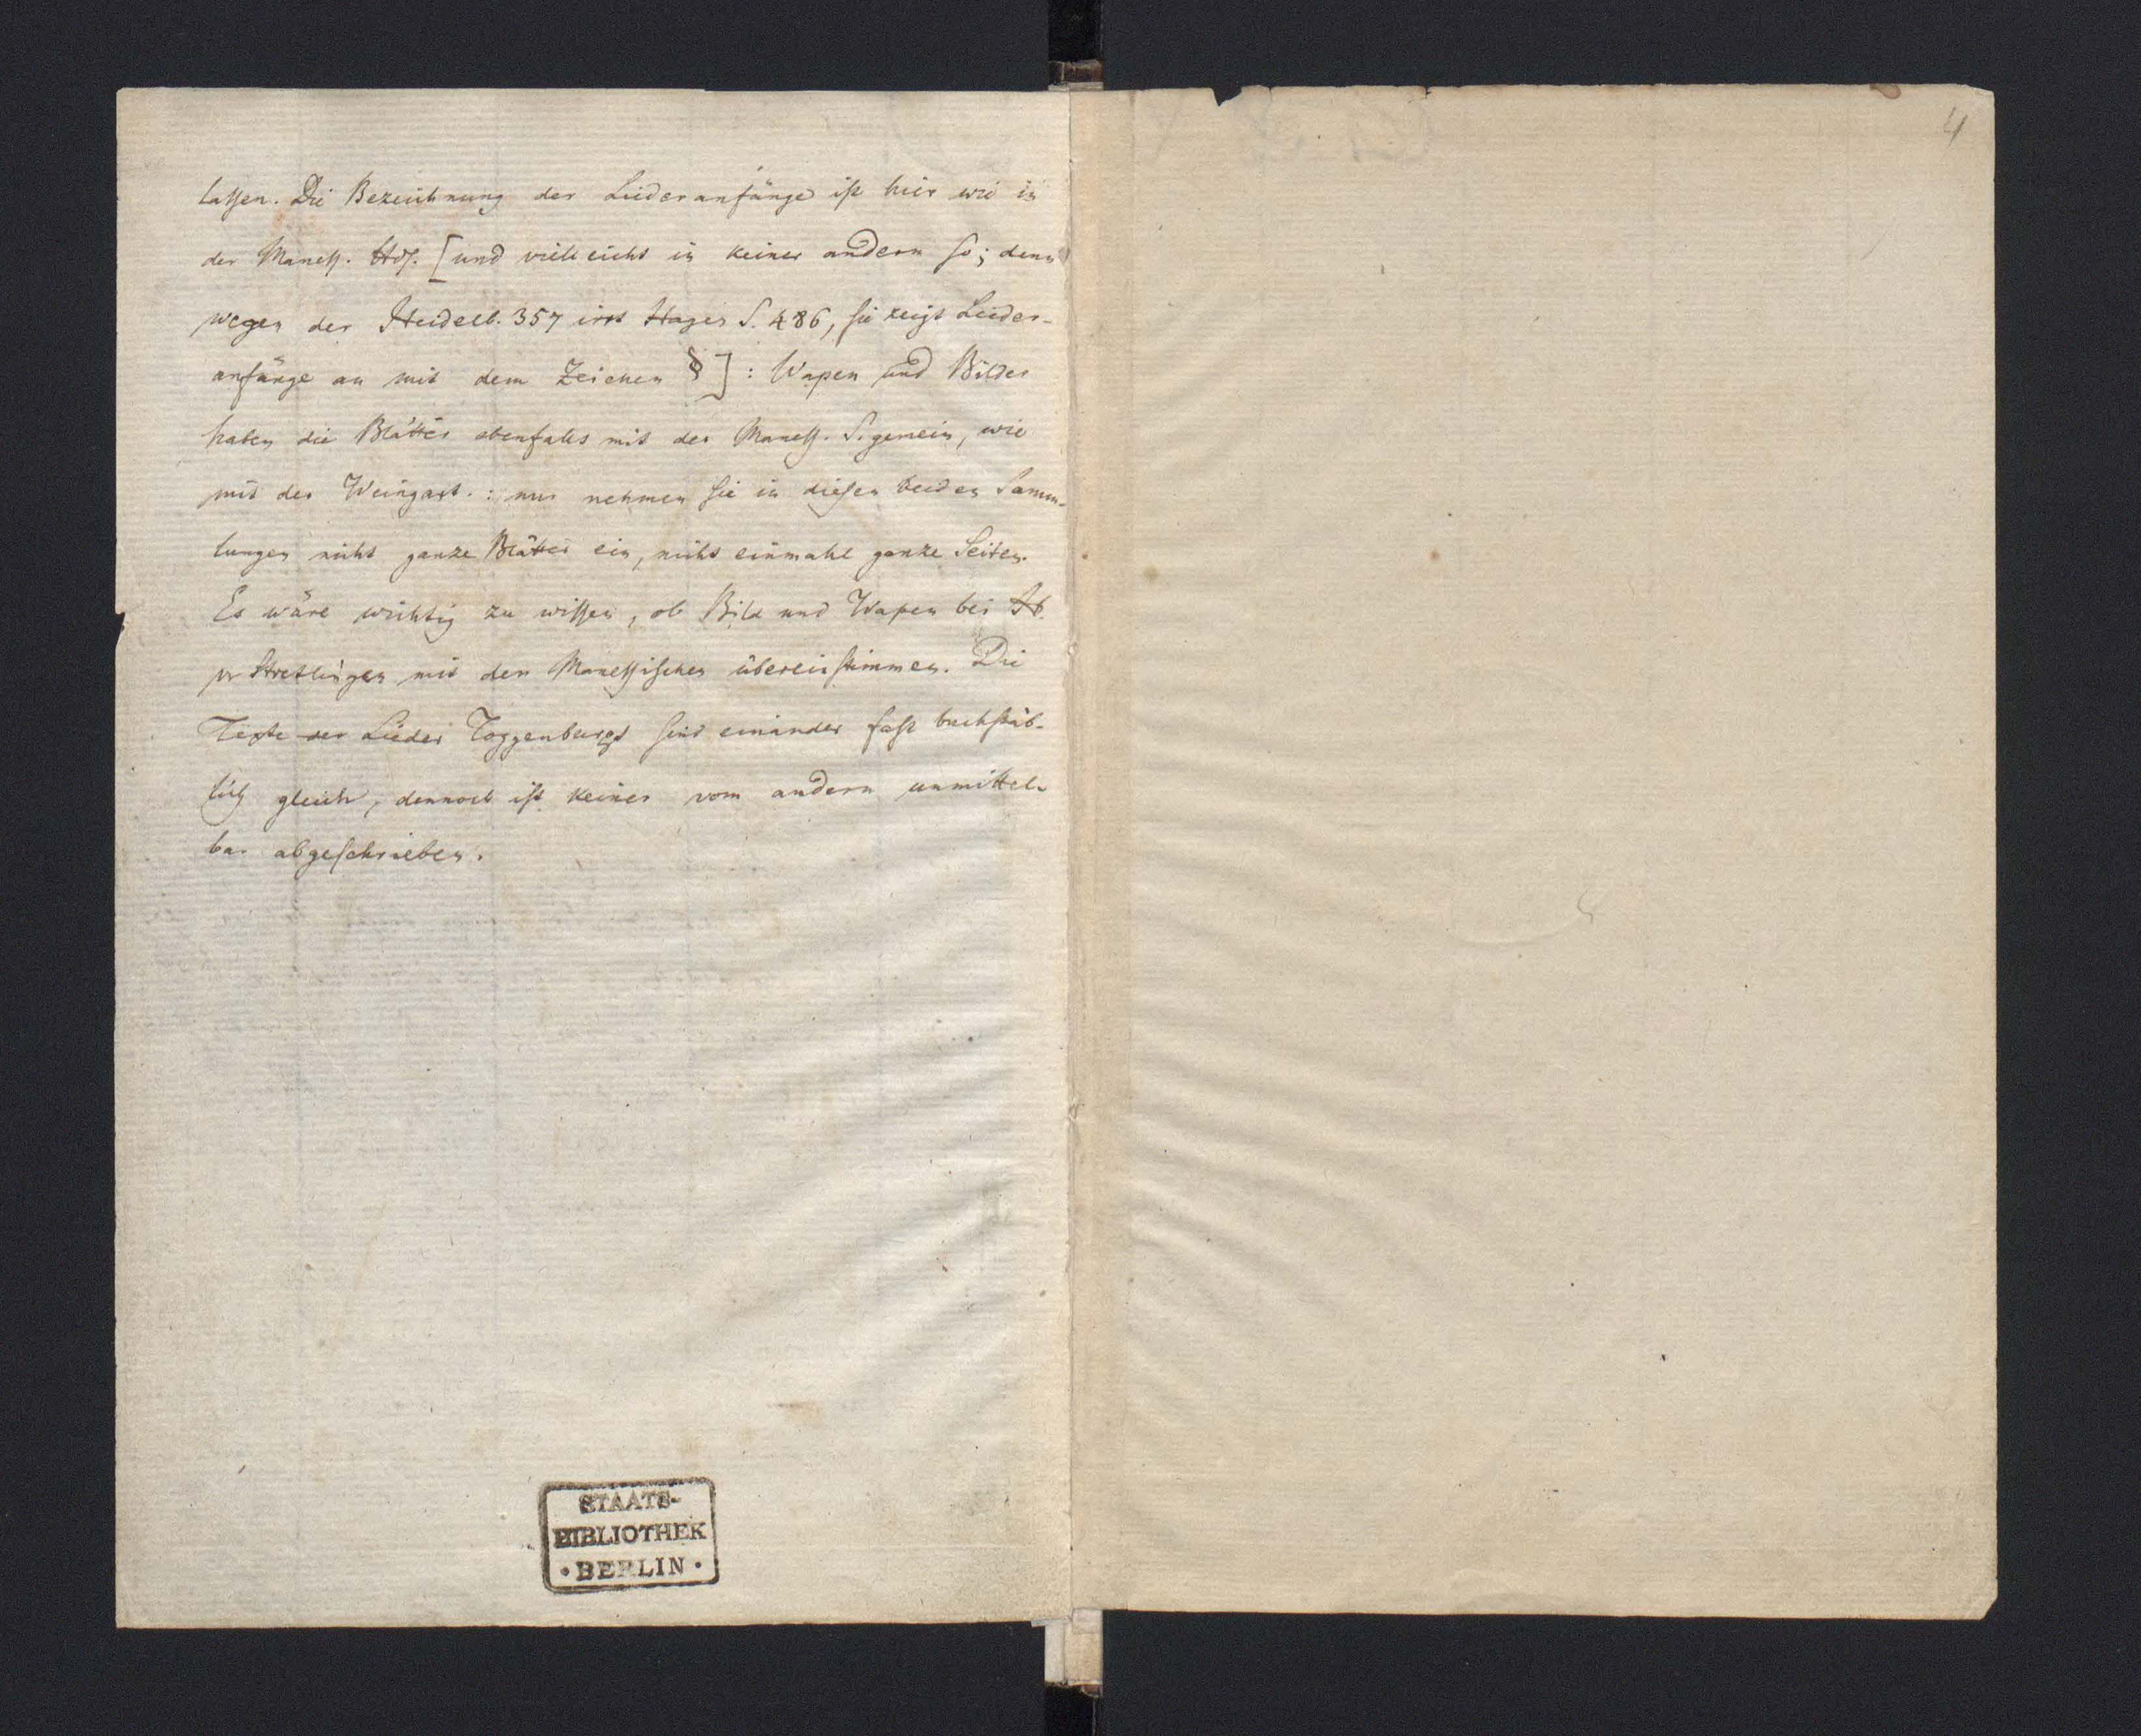 laſſen. Die Bezeichnung der Liederanfänge iſt hier wie in
der Maneſſ. Hdſ. [und vielleicht in keiner andern ſo; denn
wegen der Heidelb. 357 irrt Hagen S. 486, ſie zeigt Lieder-
anfänge an mit dem Zeichen §]: Wapen und Bilder
haben die Blätter ebenfalls mit der Maneſſ. S. gemein, wie
mit der Weingart.: nur nehmen ſie in dieſen beiden Samm-
lungen nicht ganze Blätter ein, nicht einmahl ganze Seiten.
Es wäre wichtig zu wiſſen, ob Bild und Wapen bei H.
v Stretlingen mit den Maneſſiſchen übereinſtimmen. Die
Texte der Lieder Toggenburgs ſind einander faſt buchſtäb-
lich gleich, dennoch iſt keiner vom andern unmittel-
bar abgeſchrieben.
STAATS-
BIBLIOTHEK
• BERLIN •
4